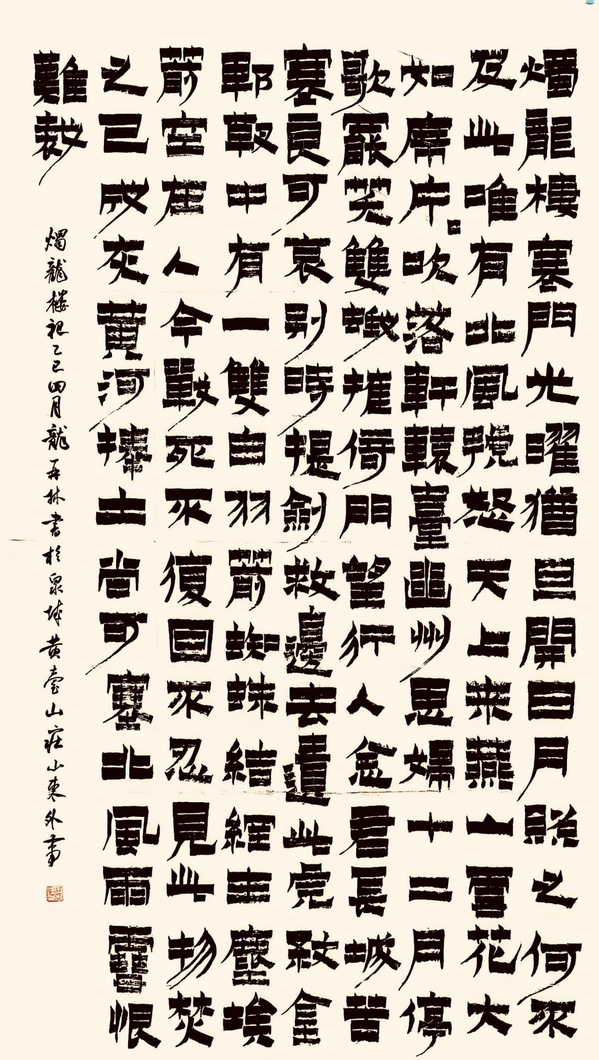 燭龍樓寒門光曜猶旦開日月之何不
及此唯有北風號怒天上來燕山雪花大
如席片々吹落軒轅臺幽州思婦十二月停
歌罷笑雙蛾摧倚門望行人念君長城苦
寒良可哀別時提劍救邊去遺此虎紋金
靫中有一雙白羽箭蜘蛛結網生塵埃
箭空在人今戰死不復回不忍見此物焚
之已成灰黃河捧土尚可塞北風雨雪恨
難裁
燭龍樓記乙巳四月龍再林書於泉城黄臺山莊山東外事